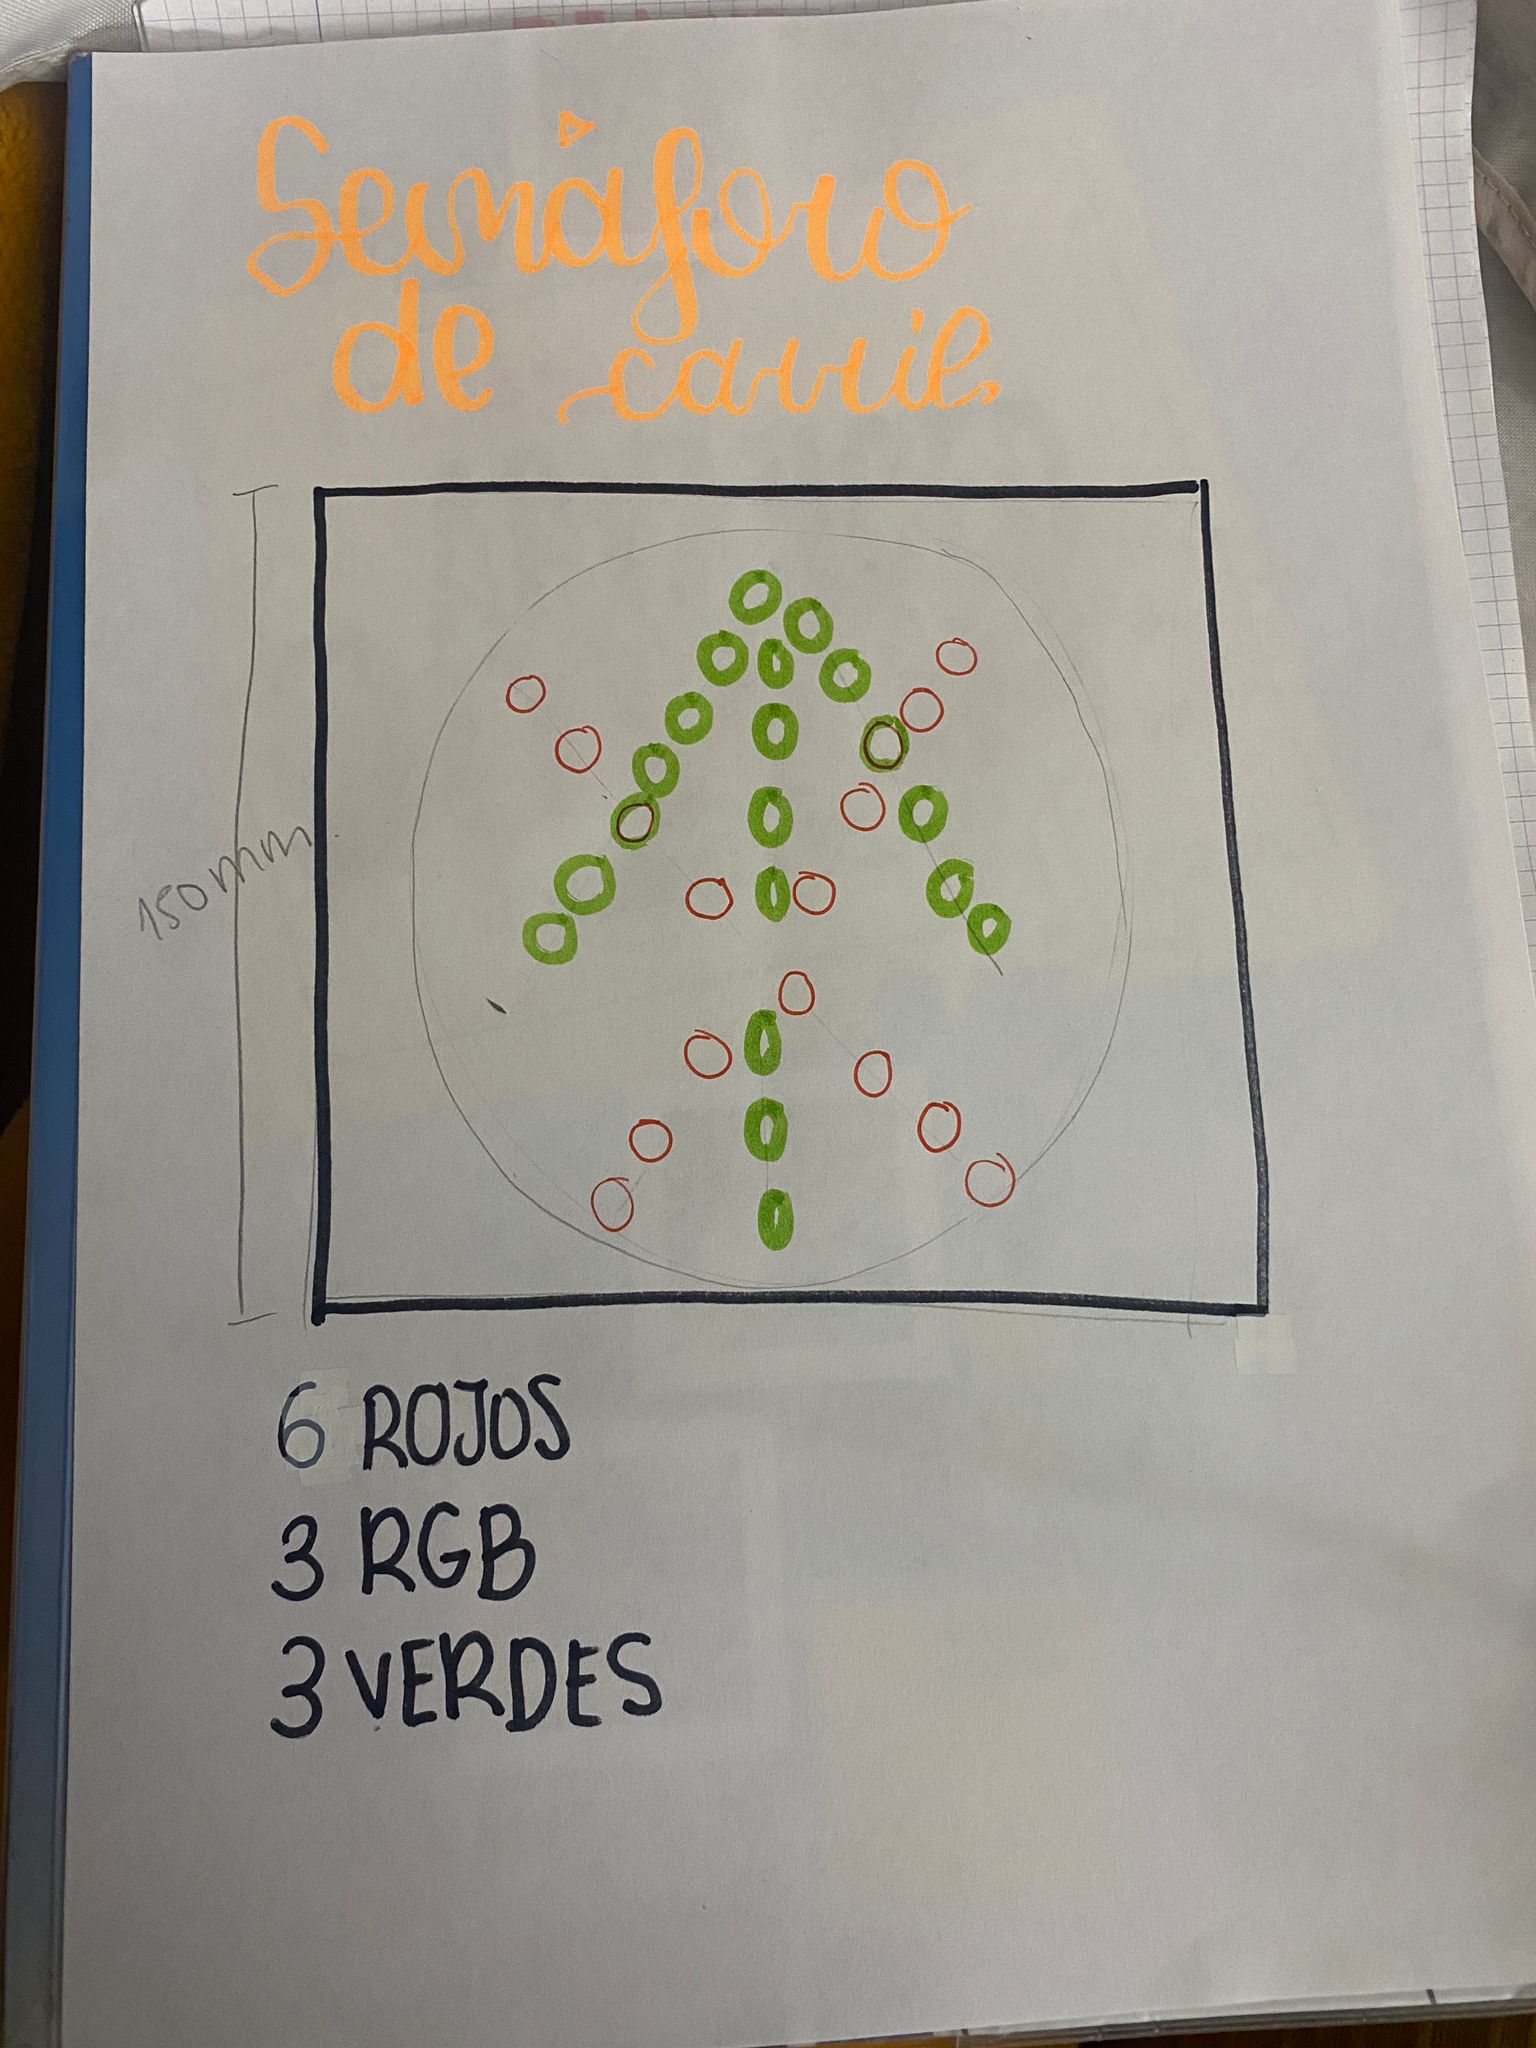 Semáforo
de carril
150mm
6 ROJOS
3 RGB
3 VERDES